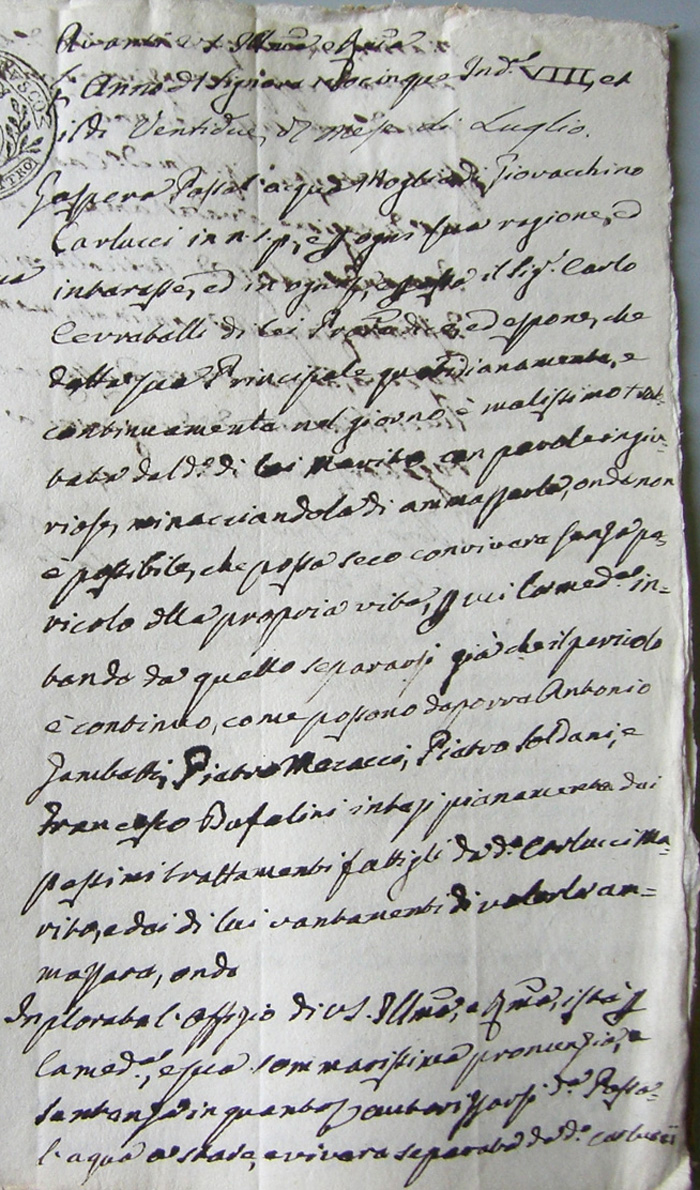 Avanti VS Illma, e Rma
L'Anno del Signore Indne VIII, et
il dì Ventidue, del mese di Luglio.
Gaspera Passal'acqua Moglie di Giovacchino
Carlucci in n. sp, e p ogni sua ragione, ed
interesse, ed in ogni il Sigr. Carlo
di lei Prore di C, ed espone, che
detta sua Principale quotidianamente, e
continuamente nel giorno è malissimo trat-
tata dal do. di lei Marito con parole ingiu-
riose, minacciandola di ammazzarla, onde non
è possibile, che possa seco convivere senza pe-
ricolo della propria vita, p cui la meda. in=
tende da quello separarsi già che il pericolo
è continuo, come possono deporre Antonio
Zambatti, Pietro Meracci, Pietro Soldani, e
Francesco Bufalini intesi pienamente dei
pessimi trattamenti fattigli da do. Carlucci Ma=
rito, e dei di lui vantamenti di volerla am=
mazzare, onde
Implorate l'Offizio di VS. Illma, e Rma, istà p
la meda., e sua sommarissima pronunzia, e
sentenza in quanto autorizzarsi da. Passa=
l'aqua a stare, e vivere separata da do. Carlucci
PRO